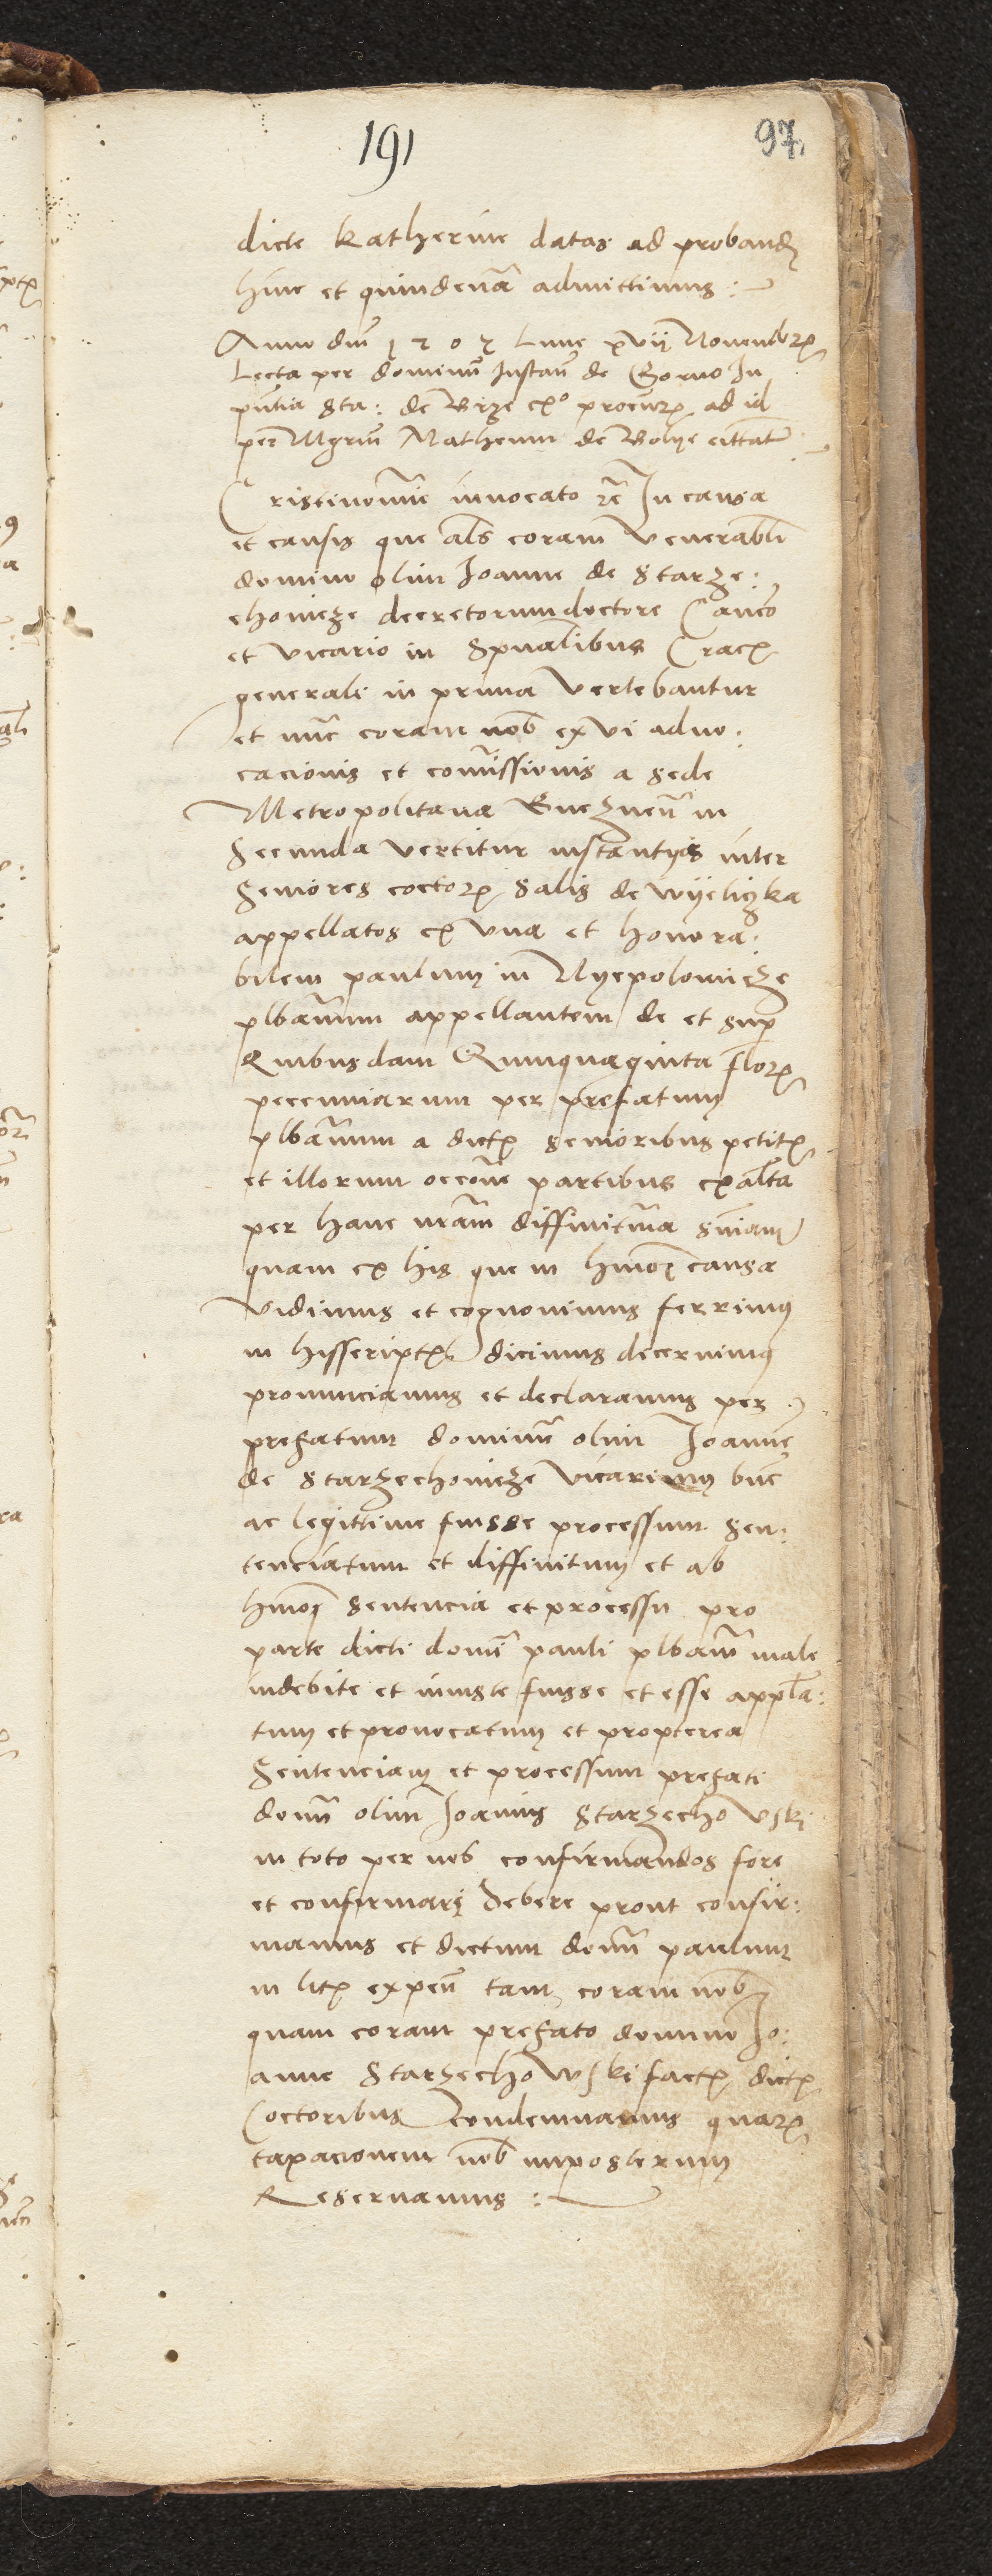 191
97
dicte Katherine datas ad proband
hinc et quindenã admittimus :
Anno dni 1505 Lune xvij Novembr
Lecta per dominũ Instan de Gorno In
pñtia Sta: de Brze exº procur ad id
per Mgrum Matheum de Bolye cittat
Cristi nomine invocato etc In causa
et causis que als coram Venerabli
domino olim Joanne de Starze:
chovicze decretorum doctore Canco
et Vicario in Spualibus Crac
generali in prima Vertebantur
et nũc coram nob ex vi advo:
cacionis et comissionis a sede
Metropolitana Gneznen in
Secunda vertitur instantijs inter
Seniores coctor Salis de Wyeliczka
appellatos ex Vna et honora:
bilem paulum in Nyepolomicze
plbanum appellantem de et sup
Quibusdam Quinquaginta flor
peccuniarum per prefatum
plbanum a dict senioribus petit
et illorum occone partibus ex alta
per hanc nram diffinitiva sniam
quam ex his que in hmoi causa
Vidimus et cognovimus ferrimus
in hisscript dicimus decernimus
pronunciamus et declaramus per
prefatum dominũ olim Joanne
de Starzechovicze Vicarium bñe
ac legittime fuisse processum sen:
tenciatum et diffinitum et ab
hmoi sentencia et processu pro
parte dicti domi pauli plbani male
indebite et iniuste fuisse et esse appla:
tum et provocatum et propterea
Sentenciam et processum prefati
domi olim Joannis Starzechowski
in toto per nob confirmandos fore
et confirmari debere prout confir:
mamus et dictum domi paulum
in lit expen tam coram nob
quam coram prefato domino Jo:
anne Starzechowski fact dict
Coctoribus condemnamus quar
taxacionem nob imposterum
Reservamus :